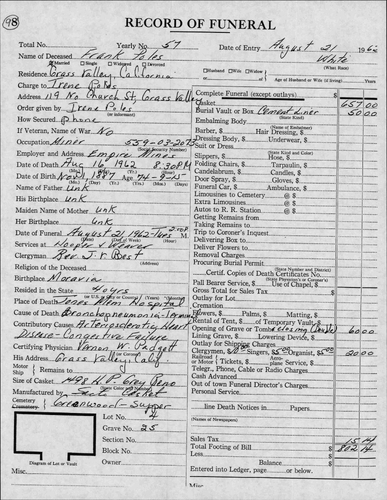 98
RECORD OF FUNERAL
Total No. Yearly No. 57 Date of Entry August 21 1962
Name of Deceased Frank Poles White
Married Single Widowed Divorced (What Race)
Residence Grass Valley, California Husband Wife Widow of
Charge to Irene Poles Age of Husband or Wife (if living) Years
Address 119 No Church St, Grass Valley
Order given by Irene Poles
(or informant)
How Secured phone
If Veteran, Name of War No
Occupation Miner 559-03-2073
Employer and Address Empire Mines
Date of Death Aug 16, 1962 8:30 PM
Date of Birth Nov 1, 1887 Age 74-9-15
Name of Father unk
His Birthplace unk
Maiden Name of Mother unk
Her Birthplace unk
Date of Funeral August 21, 1962-Tues 2 PM
Services at Hooper & Weaver
Clergyman Rev J. V. Best
Religion of the Deceased
Birthplace Moravia
Resided in the State 40 yrs
Place of Death Jones Mem Hospital
Cause of Death Bronchopneumonia
Contributory Causes Arteriosclerotic Heart
Disease-Congestive Failure
Certifying Physician Vernon W. Padgett
His Address Grass Valley, Calif
Motor Ship Remains to
Size of Casket
Manufactured by Casket
Cemetery Crematory Greenwood
Lot No. 4
Grave No. 25
Section No.
Block No.
Owner
Diagram of Lot or Vault
Misc.
Complete Funeral (except outlays)
Casket 657 00
Burial Vault or Box Cement Liner 50 00
(State Kind)
Embalming Body
(Name of Embalmer)
Barber, Hair Dressing,
Dressing Body, Underwear,
Suit or Dress
(State Kind and Color)
Slippers, Hose,
Folding Chairs, Tarpaulin,
Candelabrum, Candles,
Door Spray, Gloves,
Funeral Car, Ambulance
Limousines to Cemetery @ $
Extra Limousines @ $
Autos to R. R. Station @ $
Getting Remains from
Taking Remains to
Trip to Coroner's Inquest
Delivering Box to
Deliver Flowers to
Removal Charges
Procuring Burial Permit
(State Number and District)
Certif. Copies of Death Certificates No.
Pall Bearer Service, Use of Chapel,
Gross Total for Sales Tax
Outlay for Lot
Cremation
Flowers, $ Palms, $ Matting, $
Rental of Tent, of Temporary Vault
Opening of Grave or Tomb 60 00
Lining Grave, Lowering Device,
Outlay for Shipping Charges
Clergymen, Singers, $5.00 Organist, $5.00 20 00
Telegr., Phone, Cable or Radio Charges
Cash Advanced
Out of town Funeral Director's Charges
Personal Service
line Death Notices in Papers
(Names of Newspapers)
Sales Tax 15 14
Total Footing of Bill 802 14
Less
Balance
Entered into Ledger, page or below.
Misc.